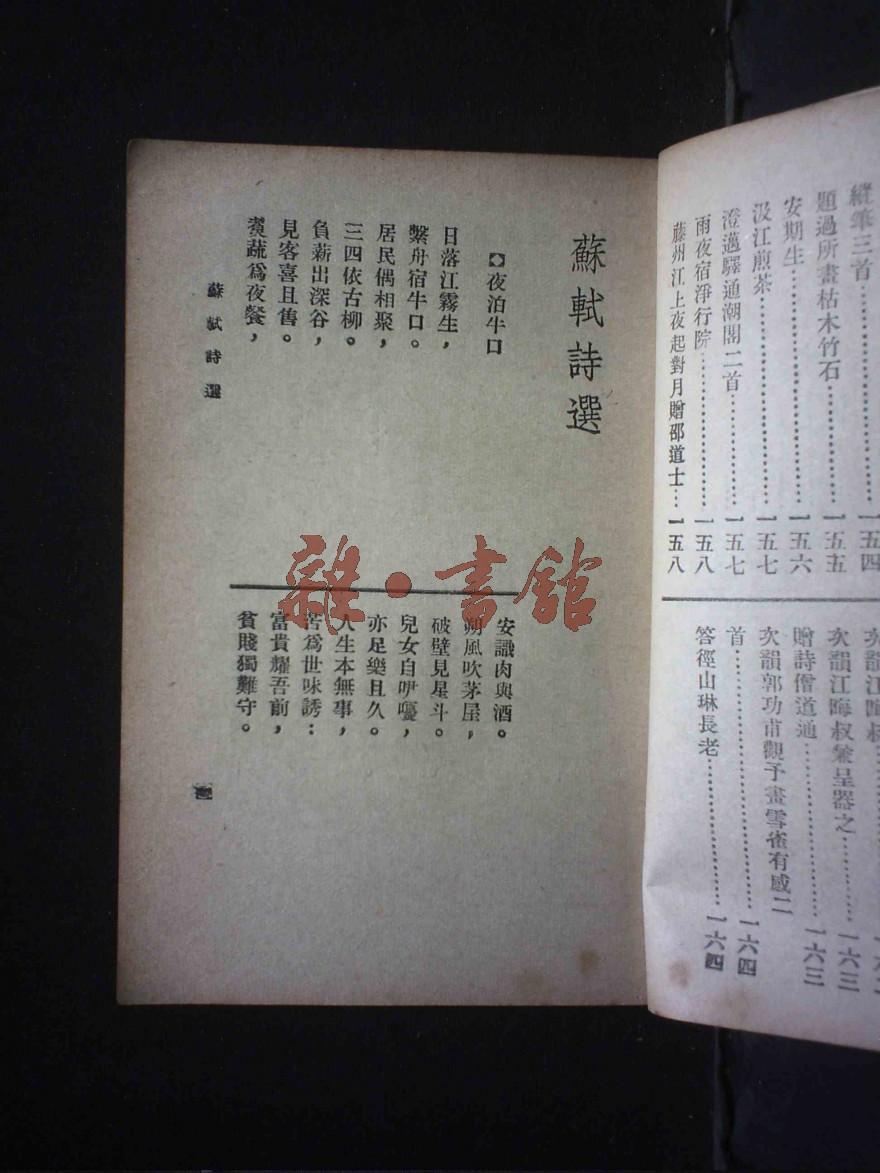 縱筆三首……一五四
題過所畫枯木竹石……一五五
安期生……一五六
汲江煎茶……一五七
澄邁驛通潮閣二首……一五七
雨夜宿淨行院……一五八
藤州江上夜起對月贈邵道士…一五八
次韻江晦叔
次韻江晦叔兼呈器之……一六三
贈詩僧道通……一六三
次韻郭功甫觀予畫雪雀有感二
首……一六四
答徑山琳長老……一六四
蘇軾詩選
夜泊牛口
日落江霧生，
繫舟宿牛口。
居民偶相聚，
三四依古柳。
負薪出深谷，
見客喜且售。
煑蔬爲夜餐，
安識肉與酒。
朔風吹茅屋，
破壁見星斗。
兒女自咿嚘，
亦足樂且久。
人生本無事，
苦爲世味誘：
富貴耀吾前，
貧賤獨難守。
蘇軾詩選
雜·書館